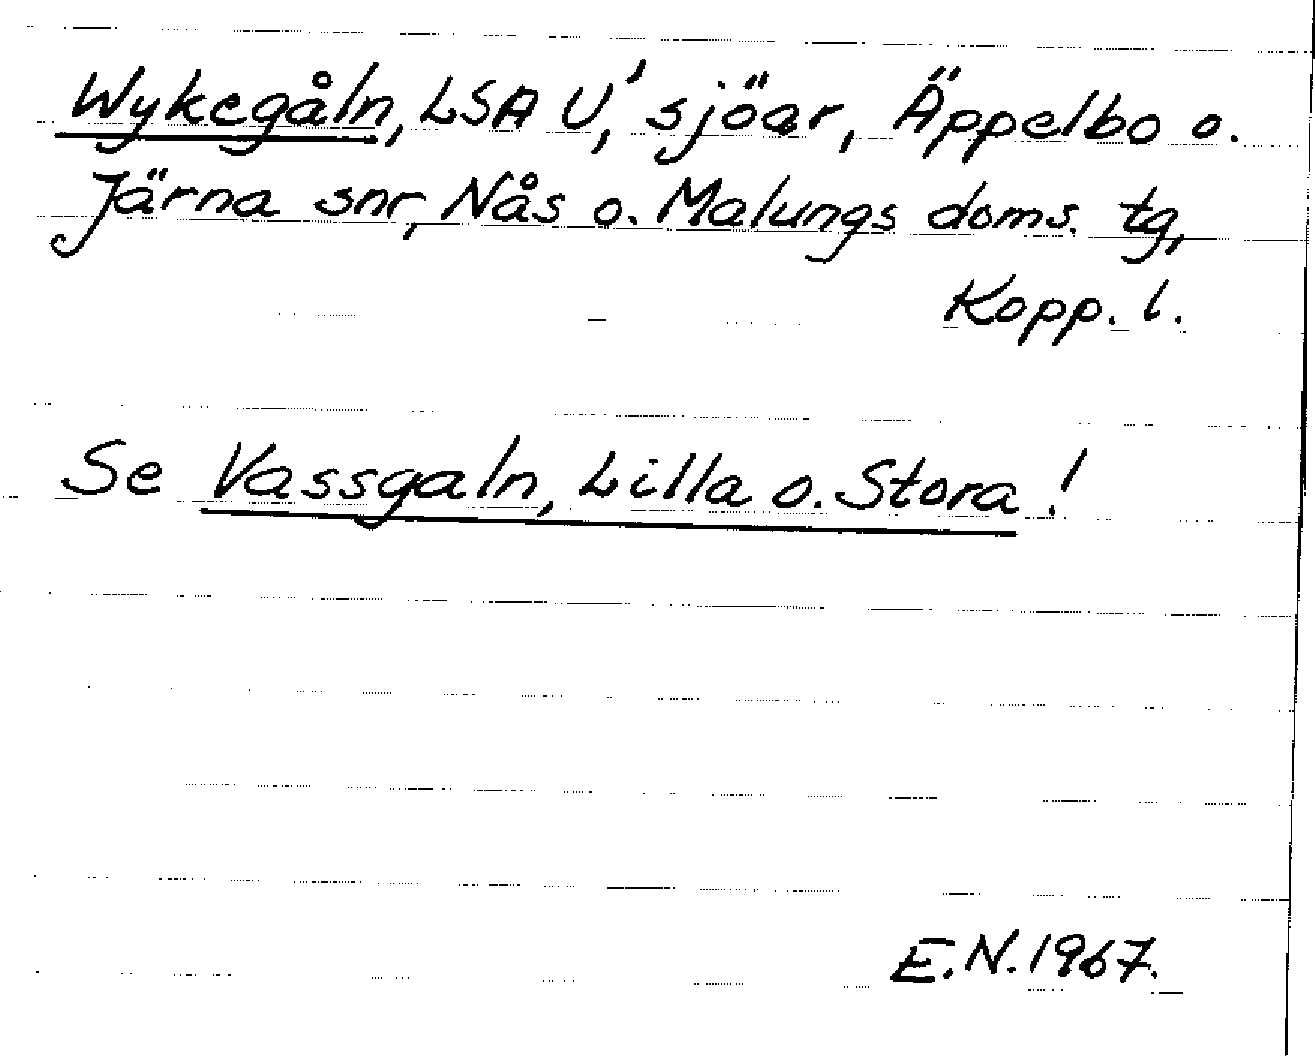 Wykegåln, LSA U', sjöar, Äppelbo o.
Järna snr, Nås o. Malungs doms. tg,
Kopp. l.
Se Vassgaln, Lilla o. Stora!
E.N. 1967.